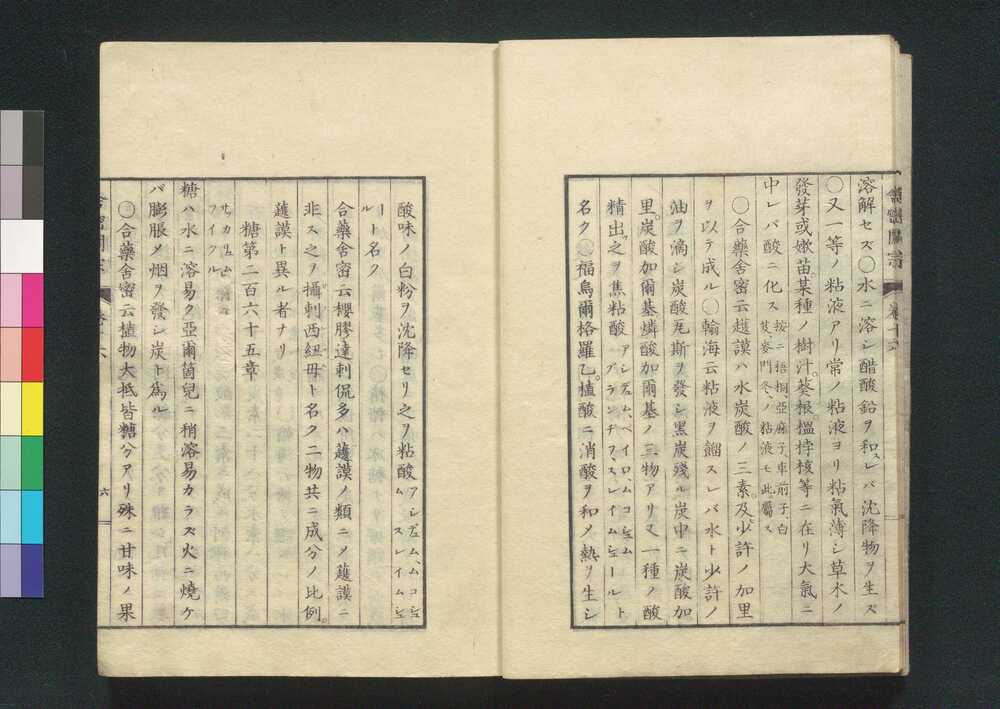 溶解セズ〇水ニ溶シ醋酸鉛ヲ和スレバ沈降物ヲ生ズ
〇又一等ノ粘液アリ常ノ粘液ヨリ粘氣薄シ草木ノ
發芽或嫩苗某種ノ樹汁葵根榲桲核等ニ在リ大氣ニ
中レバ酸ニ化ス 按ニ梧桐、亞麻子、車前子、白芨、麥門冬ノ粘液モ此屬ス
〇合藥舍密云越謨ハ水炭酸ノ三素及少許ノ加里
ヲ以テ成ル〇翰海云粘液ヲ餾スレバ水ト少許ノ
油ヲ滴シ炭酸瓦斯ヲ發シ黒炭殘ル炭中ニ炭酸加
里炭酸加爾基燐酸加爾基ノ三物アリ又一種ノ酸
精出之ヲ焦粘酸 アシデュム、ペイロ、ムコシュム ブランヂフ、スレイムシュールト
名ク〇福烏爾格羅乙植酸ニ消酸ヲ和メ熱ヲ生シ
舍密開宗 卷十六
酸味ノ白粉ヲ沈降セリ之ヲ粘酸 アシデュム、ムコシュム スレイムシュ
ールト名ク
合藥舍密云櫻膠達剌侃多ハ護謨ノ類ニメ護謨ニ
非ス之ヲ攝剌西紐母ト名ク二物共ニ成分ノ比例
護謨ト異ル者ナリ
糖第二百六十五章
サッカリュム
フイクル
糖ハ水ニ溶易ク亞爾箇兒ニ稍溶易カラズ火ニ燒ケ
バ膨脹メ烟ヲ發シ炭ト爲ル
〇合藥舍密云植物大抵皆糖分アリ殊ニ甘味ノ果
六